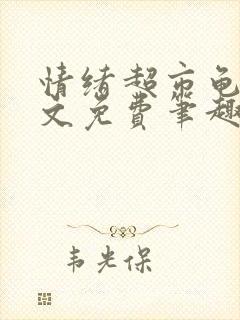 情绪超市龟
文免费笔趣
韦光保